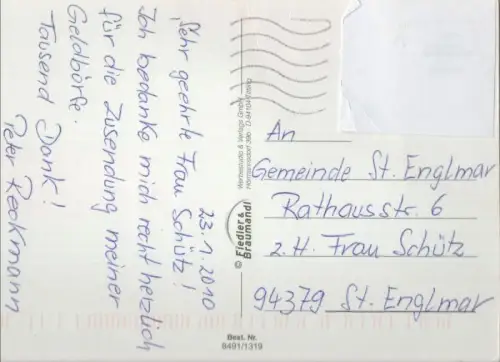 23.1.2010
Sehr geehrte Frau Schütz!
Ich bedanke mich recht herzlich
für die Zusendung meiner
Geldbörse.
Tausend Dank!
Peter Reckmann
© Fiedler &
Braumandl
Best. Nr.
8491/1319
An
Gemeinde St. Englmar
Rathausstr. 6
z.H. Frau Schütz
94379 St. Englmar